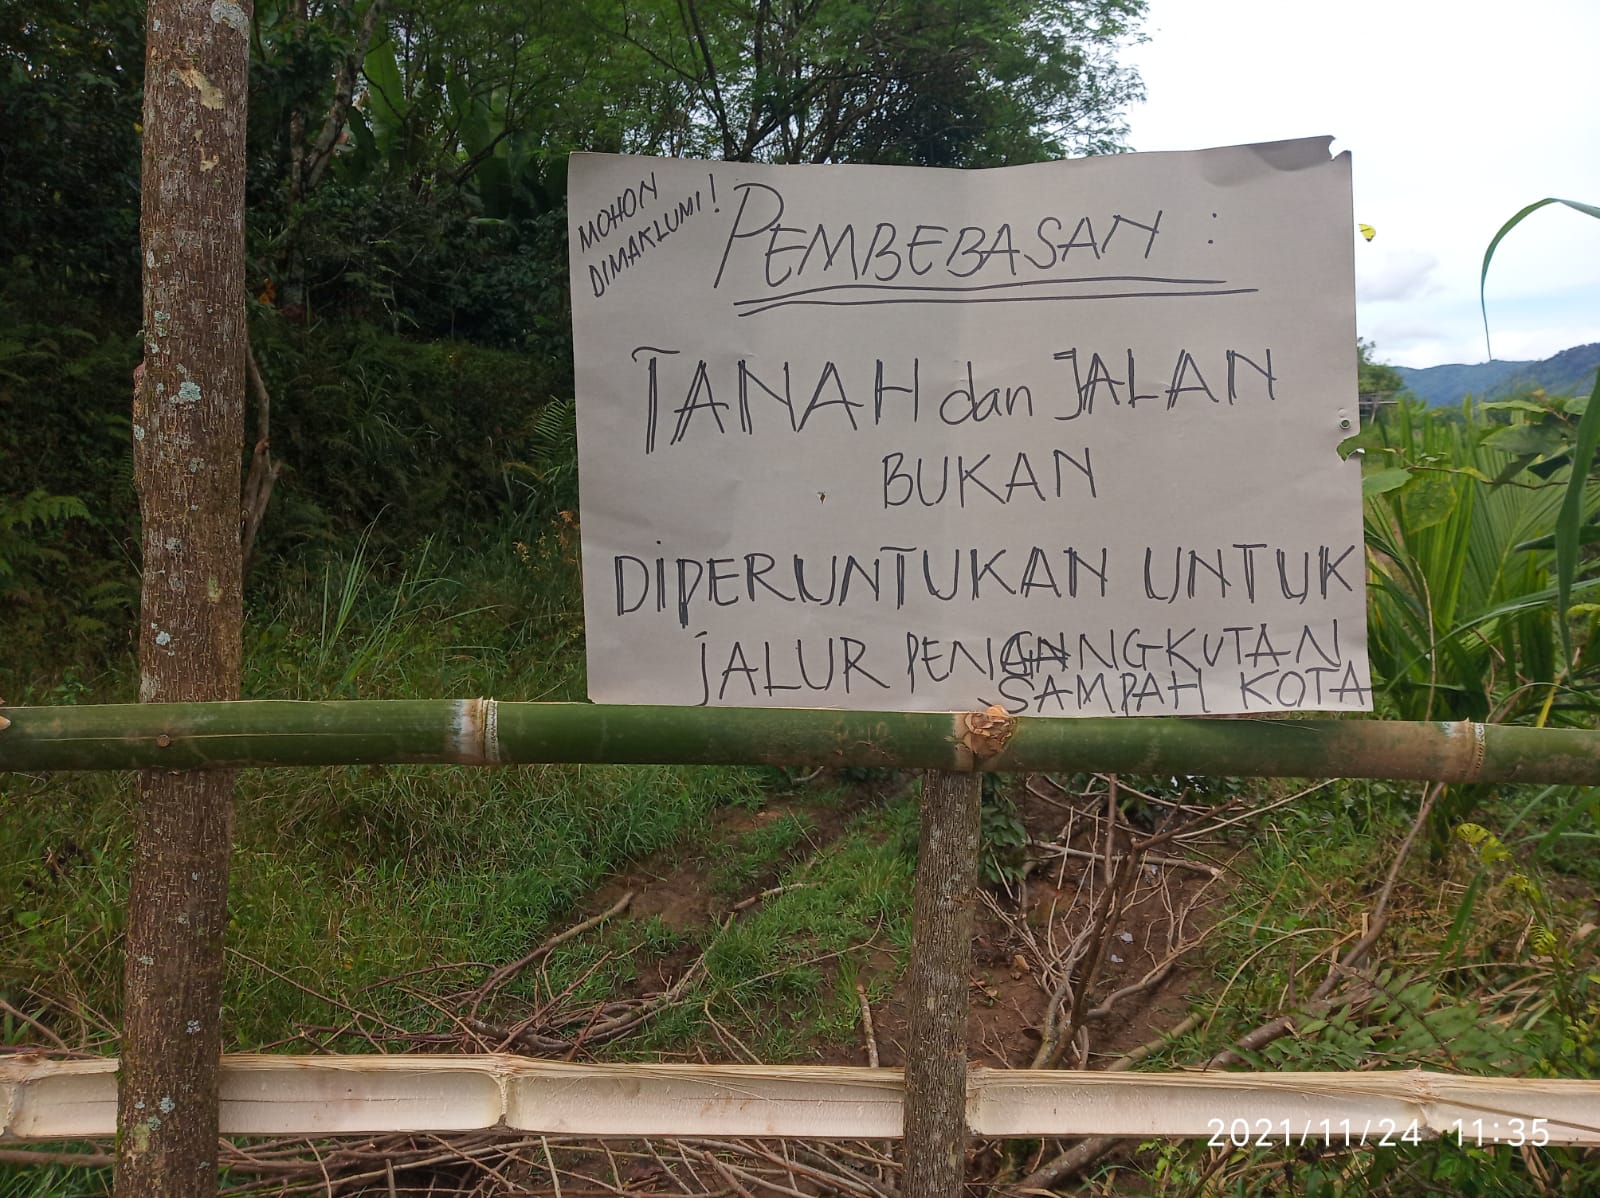 MOHON
DIMAKLUMI!
PEMBEBASAN :
TANAH dan JALAN
BUKAN
DIPERUNTUKAN UNTUK
JALUR PENGANGKUTAN
SAMPAH KOTA
2021/11/24 11:35